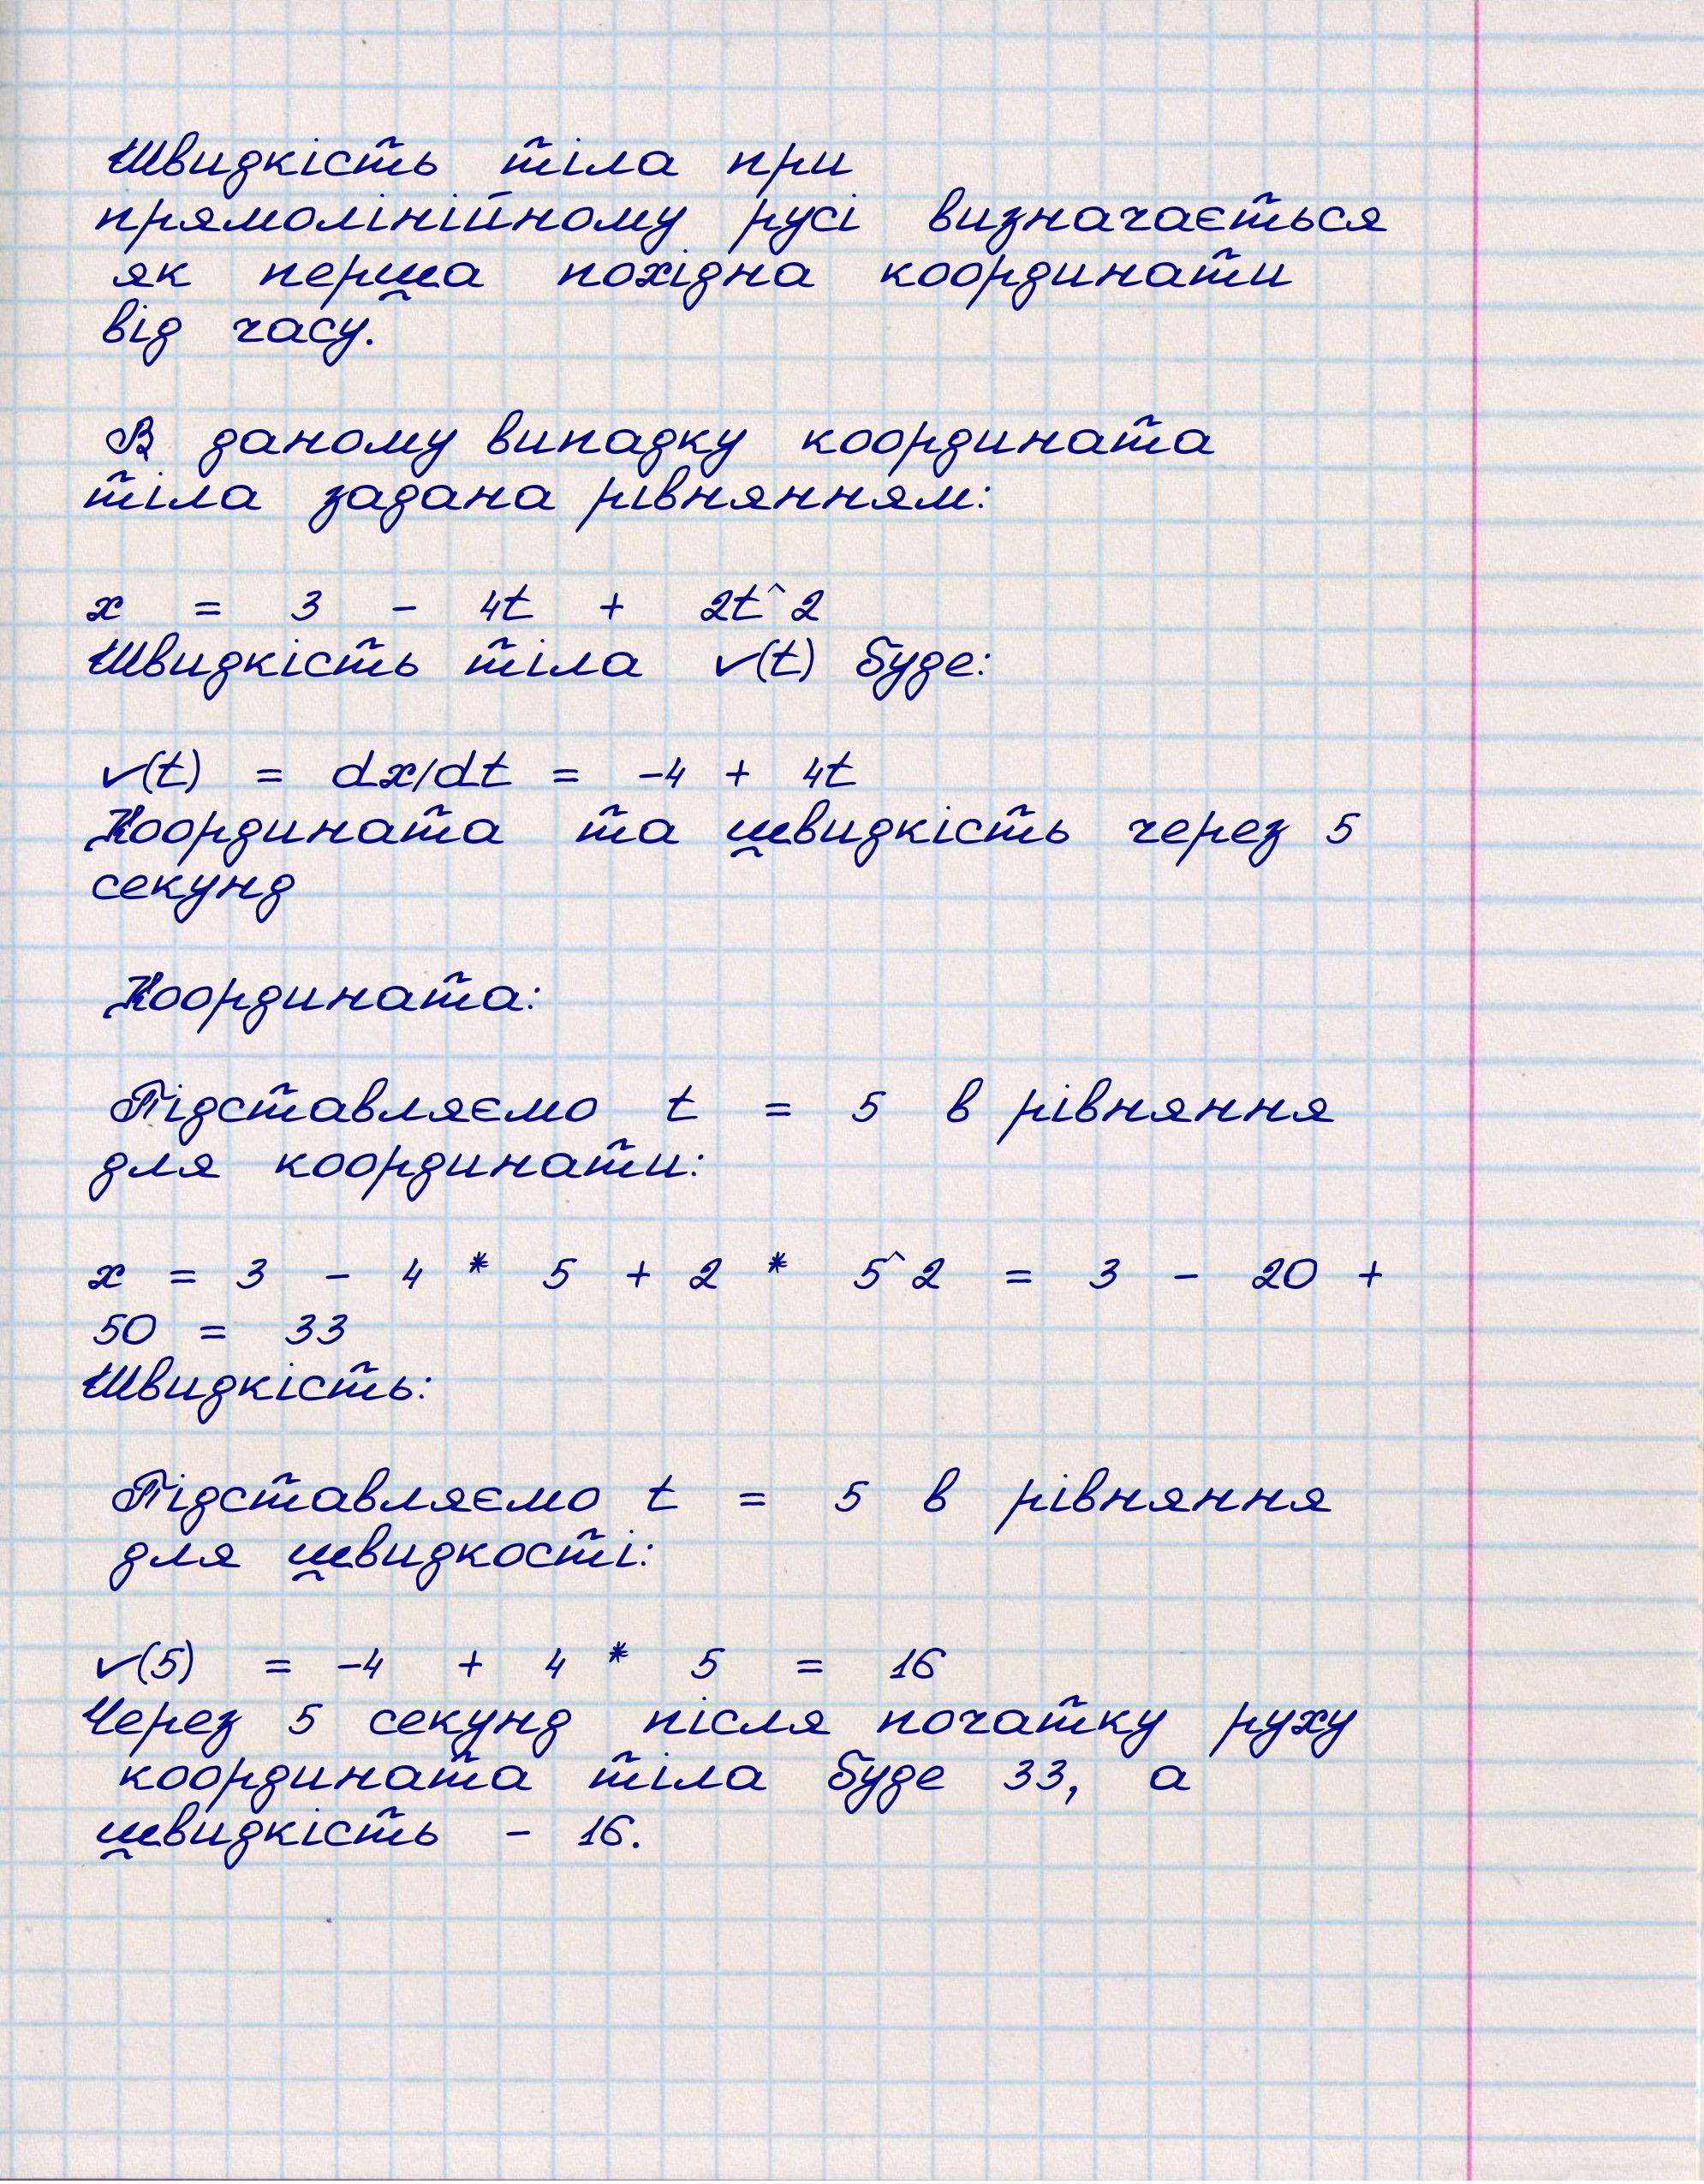 Швидкість тіла при
прямолінійному русі визначається
як перша похідна координати
від часу.
В даному випадку координата
тіла задана рівнянням:
x = 3 - 4t + 2t^2
Швидкість тіла v(t) буде:
v(t) = dx/dt = -4 + 4t
Координата та швидкість через 5
секунд
Координата:
Підставляємо t = 5 в рівняння
для координати:
x = 3 - 4 * 5 + 2 * 5^2 = 3 - 20 +
50 = 33
Швидкість:
Підставляємо t = 5 в рівняння
для швидкості:
v(5) = -4 + 4 * 5 = 16
Через 5 секунд після початку руху
координата тіла буде 33, а
швидкість - 16.